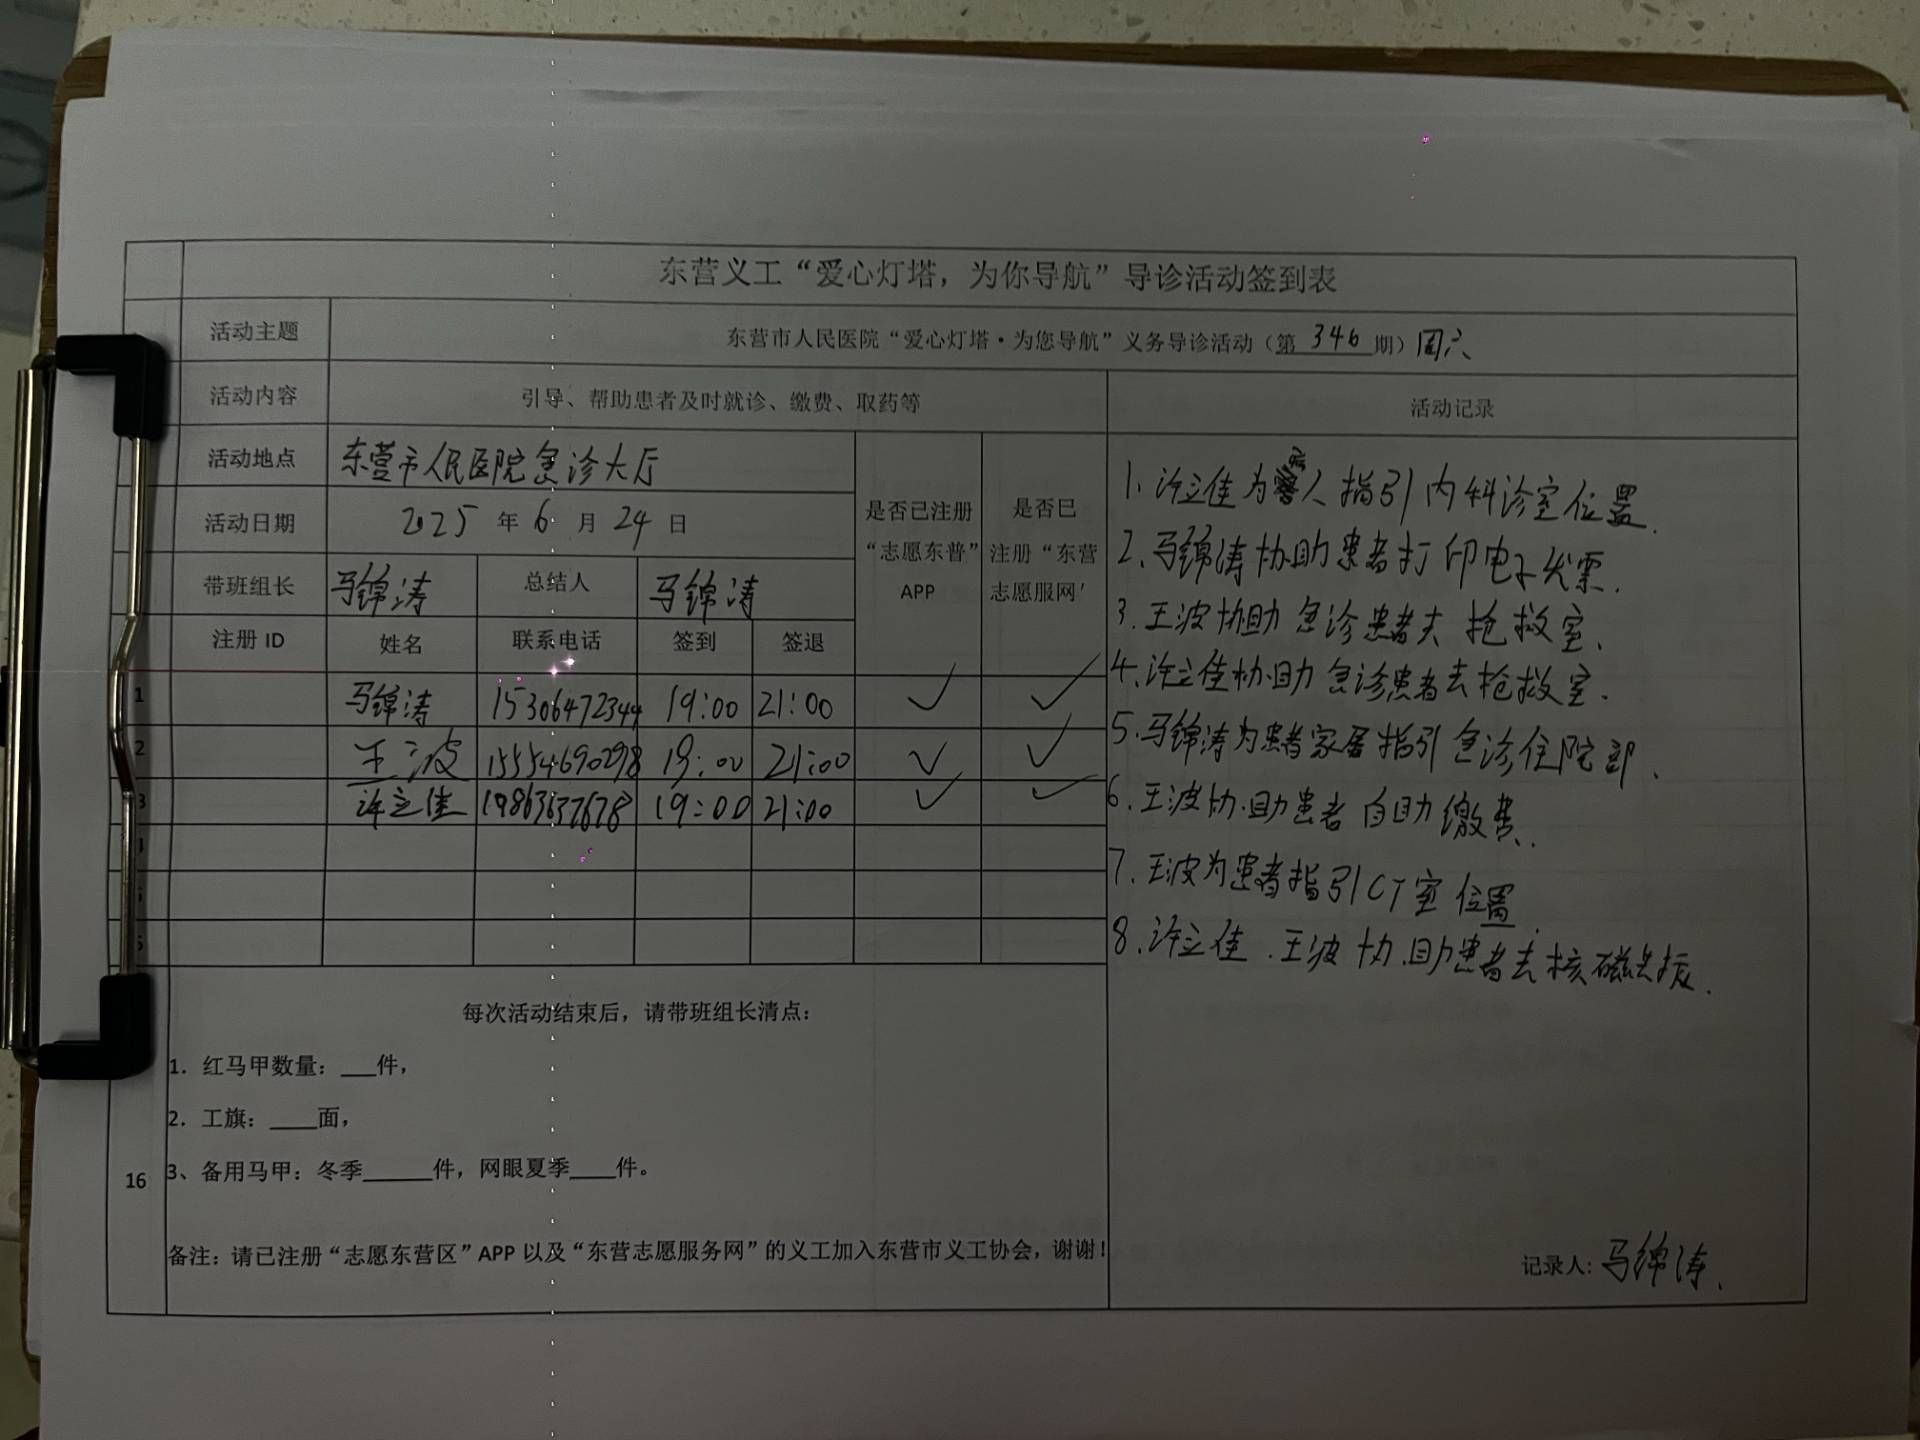 东营义工“爱心灯塔，为你导航”导诊活动签到表
活动主题 东营市人民医院“爱心灯塔·为您导航”义务导诊活动（第 346 期）周六
活动内容 引导、帮助患者及时就诊、缴费、取药等 活动记录
活动地点 东营市人民医院急诊大厅
活动日期 2025 年 6 月 24 日
是否已注册
“志愿东普”
APP
是否已
注册“东营
志愿服网'
带班组长 马锦涛 总结人 马锦涛
注册 ID 姓名 联系电话 签到 签退
1 马锦涛 15306472344 19:00 21:00 ✓ ✓
2 王波 15554690298 19:00 21:00 ✓ ✓
3 许立佳 19863637678 19:00 21:00 ✓ ✓
1.许立佳为病人指引内科诊室位置.
2.马锦涛协助患者打印电子发票.
3.王波协助急诊患者去抢救室.
4.许立佳协助急诊患者去抢救室.
5.马锦涛为患者家属指引急诊住院部.
6.王波协助患者自助缴费.
7.王波为患者指引CT室位置.
8.许立佳.王波协助患者去核磁共振.
每次活动结束后，请带班组长清点：
1. 红马甲数量：___件，
2. 工旗：____面，
16
3、备用马甲：冬季______件，网眼夏季____件。
备注：请已注册“志愿东营区”APP 以及“东营志愿服务网”的义工加入东营市义工协会，谢谢！
记录人: 马锦涛.